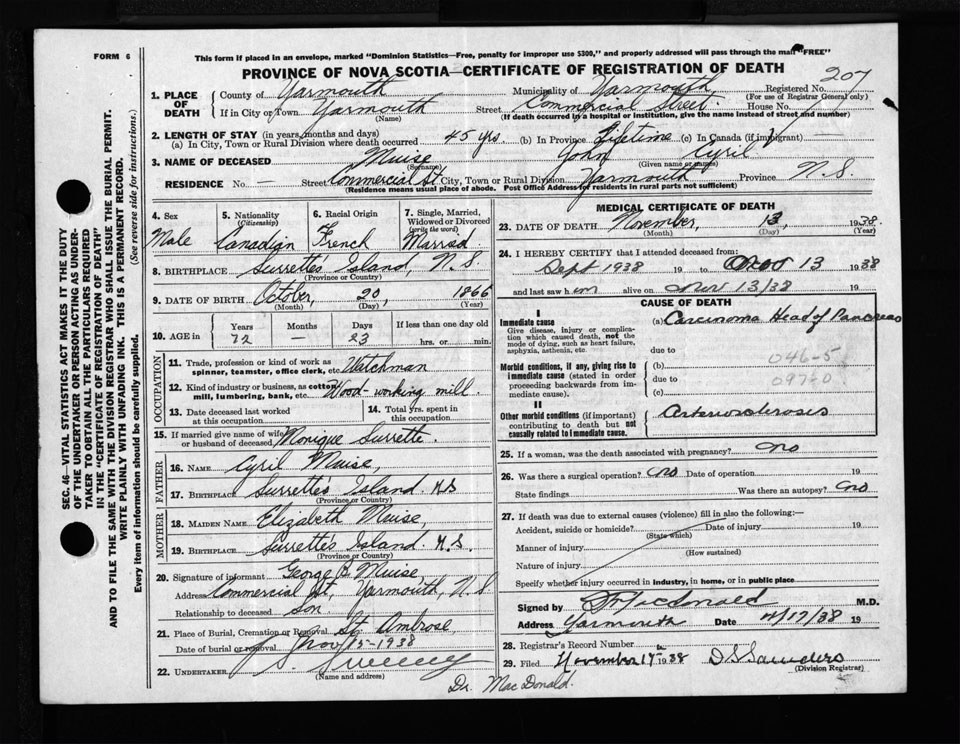 FORM 6
This form if placed in an envelope, marked "Dominion Statistics—Free, penalty for improper use $300," and properly addressed will pass through the mail "FREE"
PROVINCE OF NOVA SCOTIA—CERTIFICATE OF REGISTRATION OF DEATH
207
SEC. 46—VITAL STATISTICS ACT MAKES IT THE DUTY
OF THE UNDERTAKER OR PERSON ACTING AS UNDER-
TAKER TO OBTAIN ALL THE PARTICULARS REQUIRED
IN THE "CERTIFICATE OF REGISTRATION OF DEATH"
AND TO FILE THE SAME WITH THE DIVISION REGISTRAR WHO SHALL ISSUE THE BURIAL PERMIT.
WRITE PLAINLY WITH UNFADING INK. THIS IS A PERMANENT RECORD.
Every item of information should be carefully supplied. (See reverse side for instructions.)
1. PLACE OF DEATH
County of Yarmouth Municipality of Yarmouth Registered No.
(For use of Registrar General only)
If in City or Town Yarmouth Street Commercial Street. House No.
(Name) (If death occurred in a hospital or institution, give the name instead of street and number)
2. LENGTH OF STAY (in years, months and days)
(a) In City, Town or Rural Division where death occurred 45 yrs. (b) In Province Lifetime (c) In Canada (if immigrant) —
3. NAME OF DECEASED Muise John Cyril
(Surname) (Given name or names)
RESIDENCE No. — Street Commercial St City, Town or Rural Division Yarmouth Province N.S.
(Residence means usual place of abode. Post Office Address for residents in rural parts not sufficient)
4. Sex 5. Nationality (Citizenship) 6. Racial Origin 7. Single, Married, Widowed or Divorced (write the word)
Male Canadian French Married.
8. BIRTHPLACE Surrette's Island, N.S.
(Province or Country)
9. DATE OF BIRTH October, 20, 1866
(Month) (Day) (Year)
10. AGE in Years Months Days If less than one day old
72 — 23 hrs. or min.
OCCUPATION
11. Trade, profession or kind of work as spinner, teamster, office clerk, etc. Watchman
12. Kind of industry or business, as cotton mill, lumbering, bank, etc. Wood-working mill.
13. Date deceased last worked at this occupation
14. Total yrs. spent in this occupation
15. If married give name of wife or husband of deceased Monique Surrette.
FATHER
16. NAME Cyril Muise,
17. BIRTHPLACE Surrette's Island N.S
(Province or Country)
MOTHER
18. MAIDEN NAME Elizabeth Muise,
19. BIRTHPLACE Surrette's Island. N.S.
(Province or Country)
20. Signature of informant George B. Muise,
Address Commercial St, Yarmouth, N.S
Relationship to deceased son.
21. Place of Burial, Cremation or Removal St. Ambrose,
Date of burial or removal Nov 15-1938
22. UNDERTAKER Sweeney
(Name and address)
MEDICAL CERTIFICATE OF DEATH
23. DATE OF DEATH November, 13, 1938.
(Month) (Day) (Year)
24. I HEREBY CERTIFY that I attended deceased from:
Sept 1938 19 to Nov 13 1938
and last saw him alive on Nov 13/38 19
CAUSE OF DEATH
I
Immediate cause (a) Carcinoma Head of Pancreas
Give disease, injury or complica-
tion which caused death, not the
mode of dying, such as heart failure,
asphyxia, asthenia, etc. due to
046-5
Morbid conditions, if any, giving rise to (b)
immediate cause (stated in order
proceeding backwards from im-
mediate cause). due to
097-0
(c)
II
Other morbid conditions (if important)
contributing to death but not
causally related to immediate cause. Arteriosclerosis
25. If a woman, was the death associated with pregnancy? no
26. Was there a surgical operation? no Date of operation 19
State findings Was there an autopsy? no
27. If death was due to external causes (violence) fill in also the following:—
Accident, suicide or homicide? Date of injury 19
(State which)
Manner of injury
(How sustained)
Nature of injury
Specify whether injury occurred in industry, in home, or in public place
Signed by MacDonald M.D.
Address Yarmouth Date 11/17/38 19
28. Registrar's Record Number
29. Filed November 17th 1938 Saunders
(Division Registrar)
Dr. MacDonald.